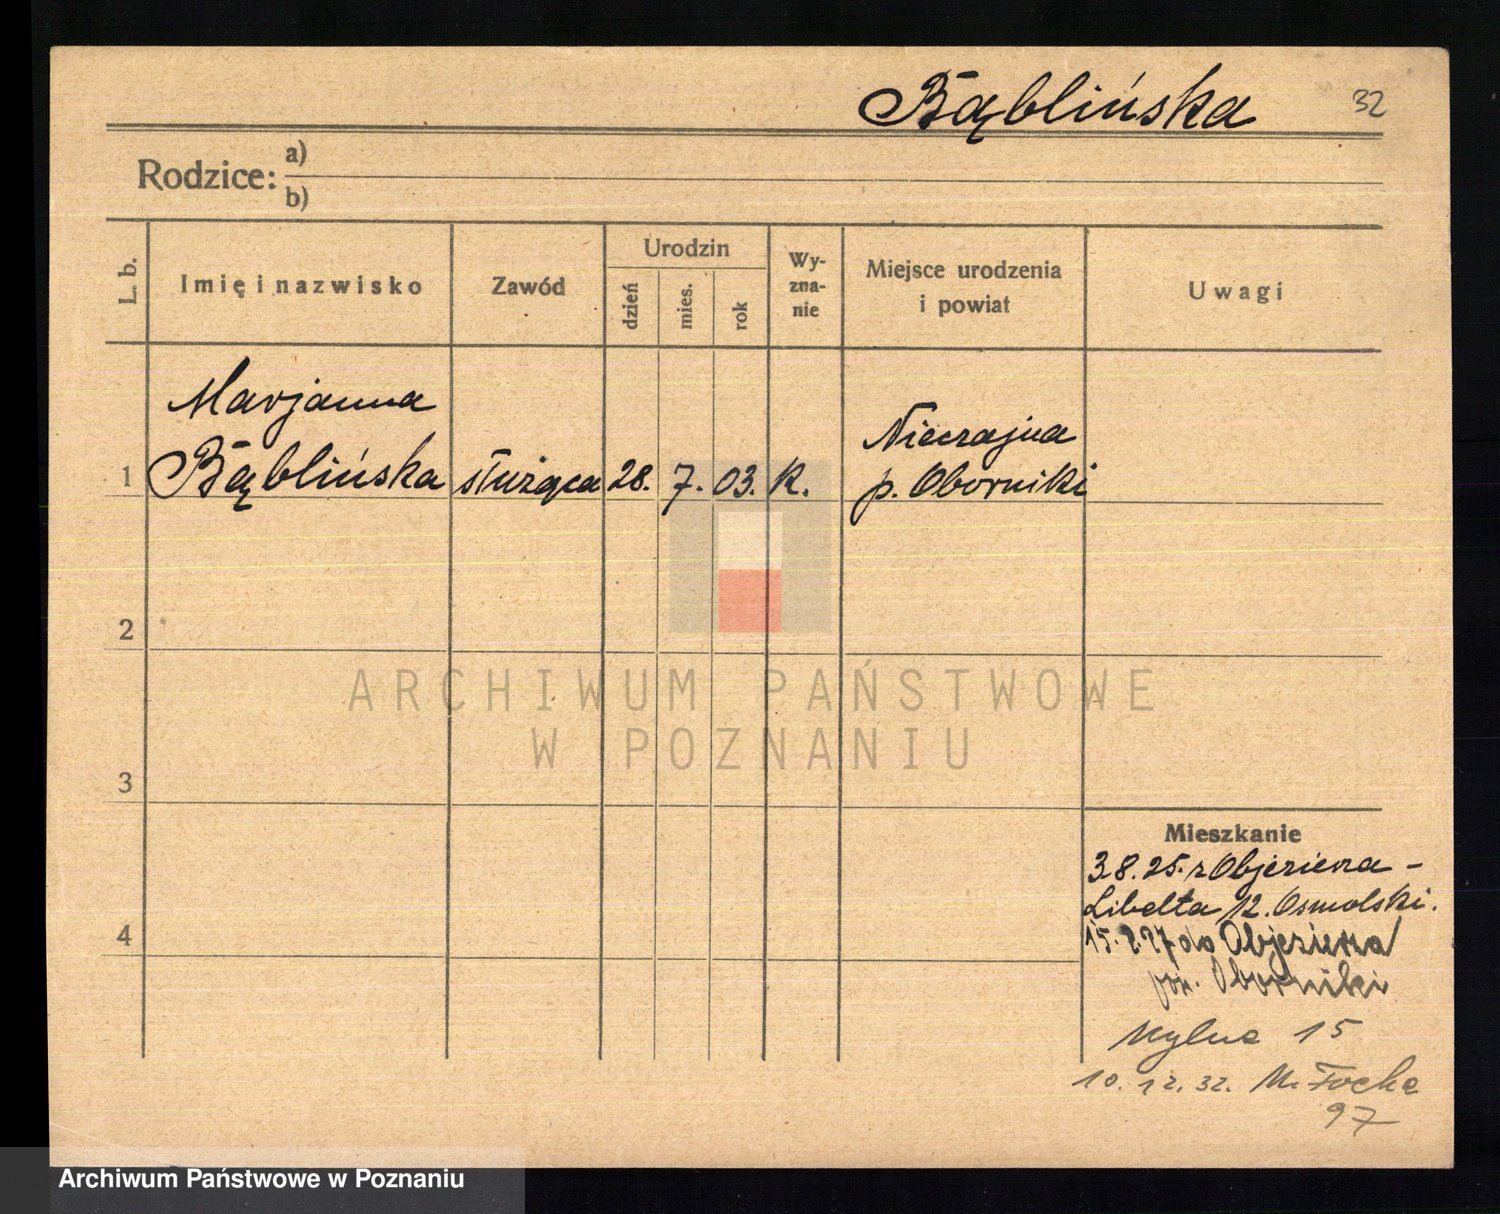 Bąblińska 32
Rodzice: a)
b)
L. b. Imię i nazwisko Zawód Urodzin dzień mies. rok Wy-zna-nie Miejsce urodzenia i powiat Uwagi
Marjanna
Bąblińska
1 służąca 28. 7. 03. k. Nieczajna
p. Oborniki
2
ARCHIWUM PAŃSTWOWE
W POZNANIU
3
Mieszkanie
3.8.25. z Objezierza -
Libelta 12. Osmolski.
4
15. 27 do Objezierza
pow. Oborniki
Mylna 15
10. 12. 32. M. Focha
97
Archiwum Państwowe w Poznaniu